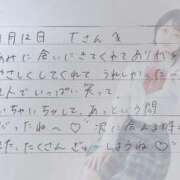 月12日 Tさんへ
あみに会いにきてくれてありがと
やさしくしてくれて うれしかった
二人でいっぱい笑って
いちゃいちゃして、あっという間
だったね〜♡ 次に会える時
また、たくさん しようね♡